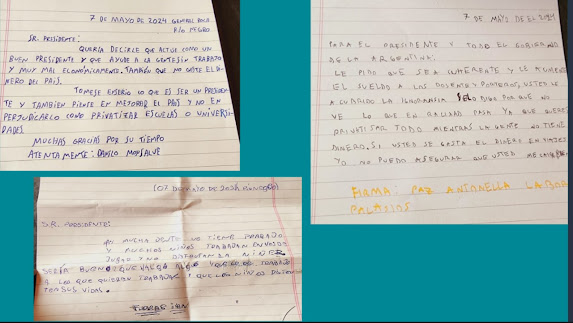 7 DE MAYO DE 2024 GENERAL ROCA
RIO NEGRO
SR. PRESIDENTE:
QUERIA DECIRLE QUE ACTUE COMO UN
BUEN PRESIDENTE Y QUE AYUDE A LA GENTE SIN TRABAJO
Y MUY MAL ECONOMICAMENTE. TAMBIEN QUE NO GASTE EL DI-
NERO DEL PAIS.
TOMESE ENSERIO LO QUE ES SER UN PRESIDEN
TE Y TAMBIEN PIENSE EN MEJORAR EL PAIS Y NO EN
PERJUDICARLO COMO PRIVATIZAR ESCUELAS O UNIVERSI-
DADES
MUCHAS GRACIAS POR SU TIEMPO
ATENTAMENTE: DANILO MONSALVE
7 DE MAYO DE EL 2024
PARA EL PRESIDENTE Y TODO EL GOBIERNO
DE LA ARGENTINA:
LE PIDO QUE SEA COHERENTE Y LE AUMENTE
EL SUELDO A LOS DOCENTE Y PORTEROS, USTED LE
A CUBRIDO LA IGNORANCIA SELO DIGO POR QUE NO
VE LO QUE EN REALIDAD PASA YA QUE QUERES
PRIVATISAR TODO MIENTRAS LA GENTE NO TIENE
DINERO, SI USTED SE GASTA EL DINERO EN VIAJES
YO NO PUEDO ASEGURAR QUE USTED ME
FIRMA: PAZ ANTONELLA
PALACIOS
(07 DE MAYO DE 2024
SR. PRESIDENTE:
MUCHA GENTE NO TIENE TRABAJO
Y MUCHOS NIÑOS TRABAJAN EN VES DE
JUGAR Y NO DISFRUTAN LA NIÑEZ.
SERÍA BUENO QUE HAGA ALGO Y QUE LE DE TRABAJO
A LOS QUE QUIEREN TRABAJAR Y QUE LOS NIÑOS
SUS VIDAS.